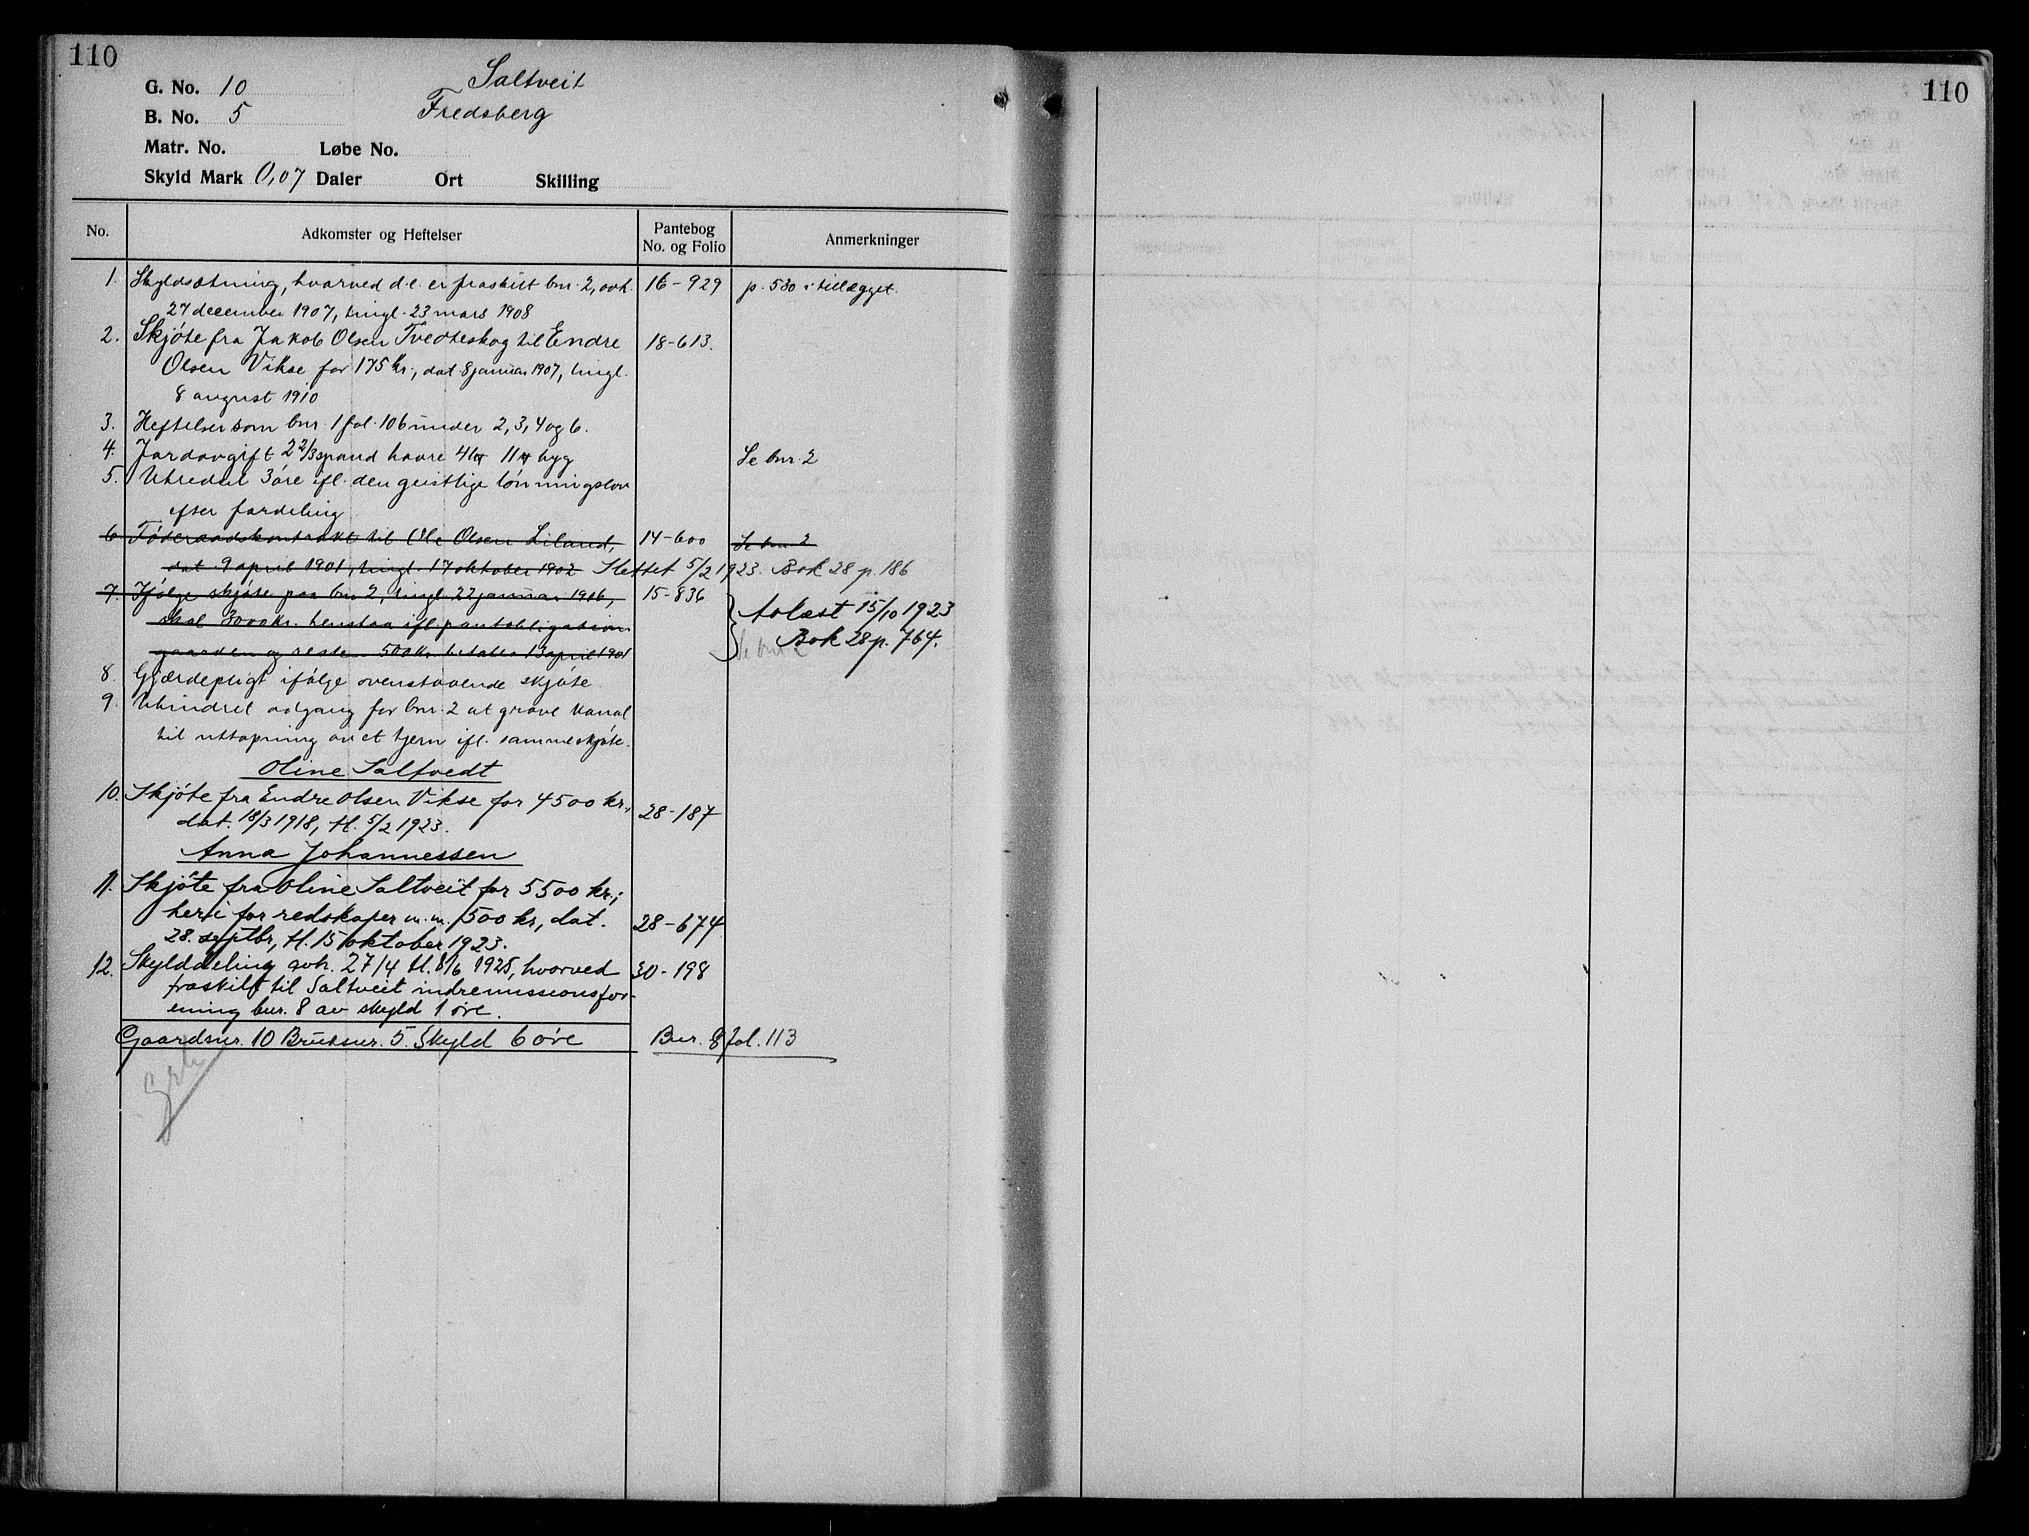 110
G. No. 10 Saltveit
B. No. 5 Fredsberg
Matr. No. Løbe No.
Skyld Mark 0,07 Daler Ort Skilling
No. Adkomster og Heftelser Pantebog No. og Folio Anmerkninger
1. Skyldsætning, hvorved d.e. er fraskilt bnr. 2, avh. 16-929 p. 530 i tillægget.
27 december 1907, tingl. 23 mars 1908
2. Skjøte fra Jakob Olsen Tvedteskog til Endre 18-613.
Olsen Vikse for 175 kr., dat 8 januar 1907, tingl.
8 august 1910
3. Heftelser som bnr. 1 fol. 106 under 2, 3, 4 og 6.
4. Jordavgift 2 2/3 spand havre 11 byg Se bnr. 2
5. Utredet 3 øre ifl. den geistlige lønningslov
efter fordeling
6. Føderaadskontrakt til Ole Olsen Liland, 14-600 Se bnr. 2
dat 9 april 1901, tingl. 17 oktober 1902 Slettet 5/2 1923. Bok 28 p. 186
7. Ifølge skjøte paa bnr. 2, tingl. 22 januar 1906, 15-836 Avlæst 15/10 1923
skal 3000 kr. henstaa ifl. pantobligation Bok 28 p. 764.
gaarden og resten 500 kr. betales 13 april 1901 Se bnr. 2
8. Gjærdepligt ifølge ovenstaaende skjøte
9. Uhindret adgang for bnr. 2 at grave kanal
til uttapning av et tjern ifl. samme skjøte.
Oline Saltvedt
10. Skjøte fra Endre Olsen Vikse for 4500 kr., 28-187
dat. 18/3 1918, tl. 5/2 1923.
Anna Johannessen
11. Skjøte fra Oline Saltveit for 5500 kr.;
heri for redskaper m.m. 500 kr, dat. 28-674
28. septbr, tl. 15 oktober 1923.
12. Skylddeling avh. 27/4 tl. 8/6 1925, hvorved 30-198
fraskilt til Saltveit indremissionsfor-
ening bnr. 8 av skyld 1 øre.
Gaardsnr. 10 Bruksnr. 5. Skyld 6 øre Bnr. 8 fol. 113
110